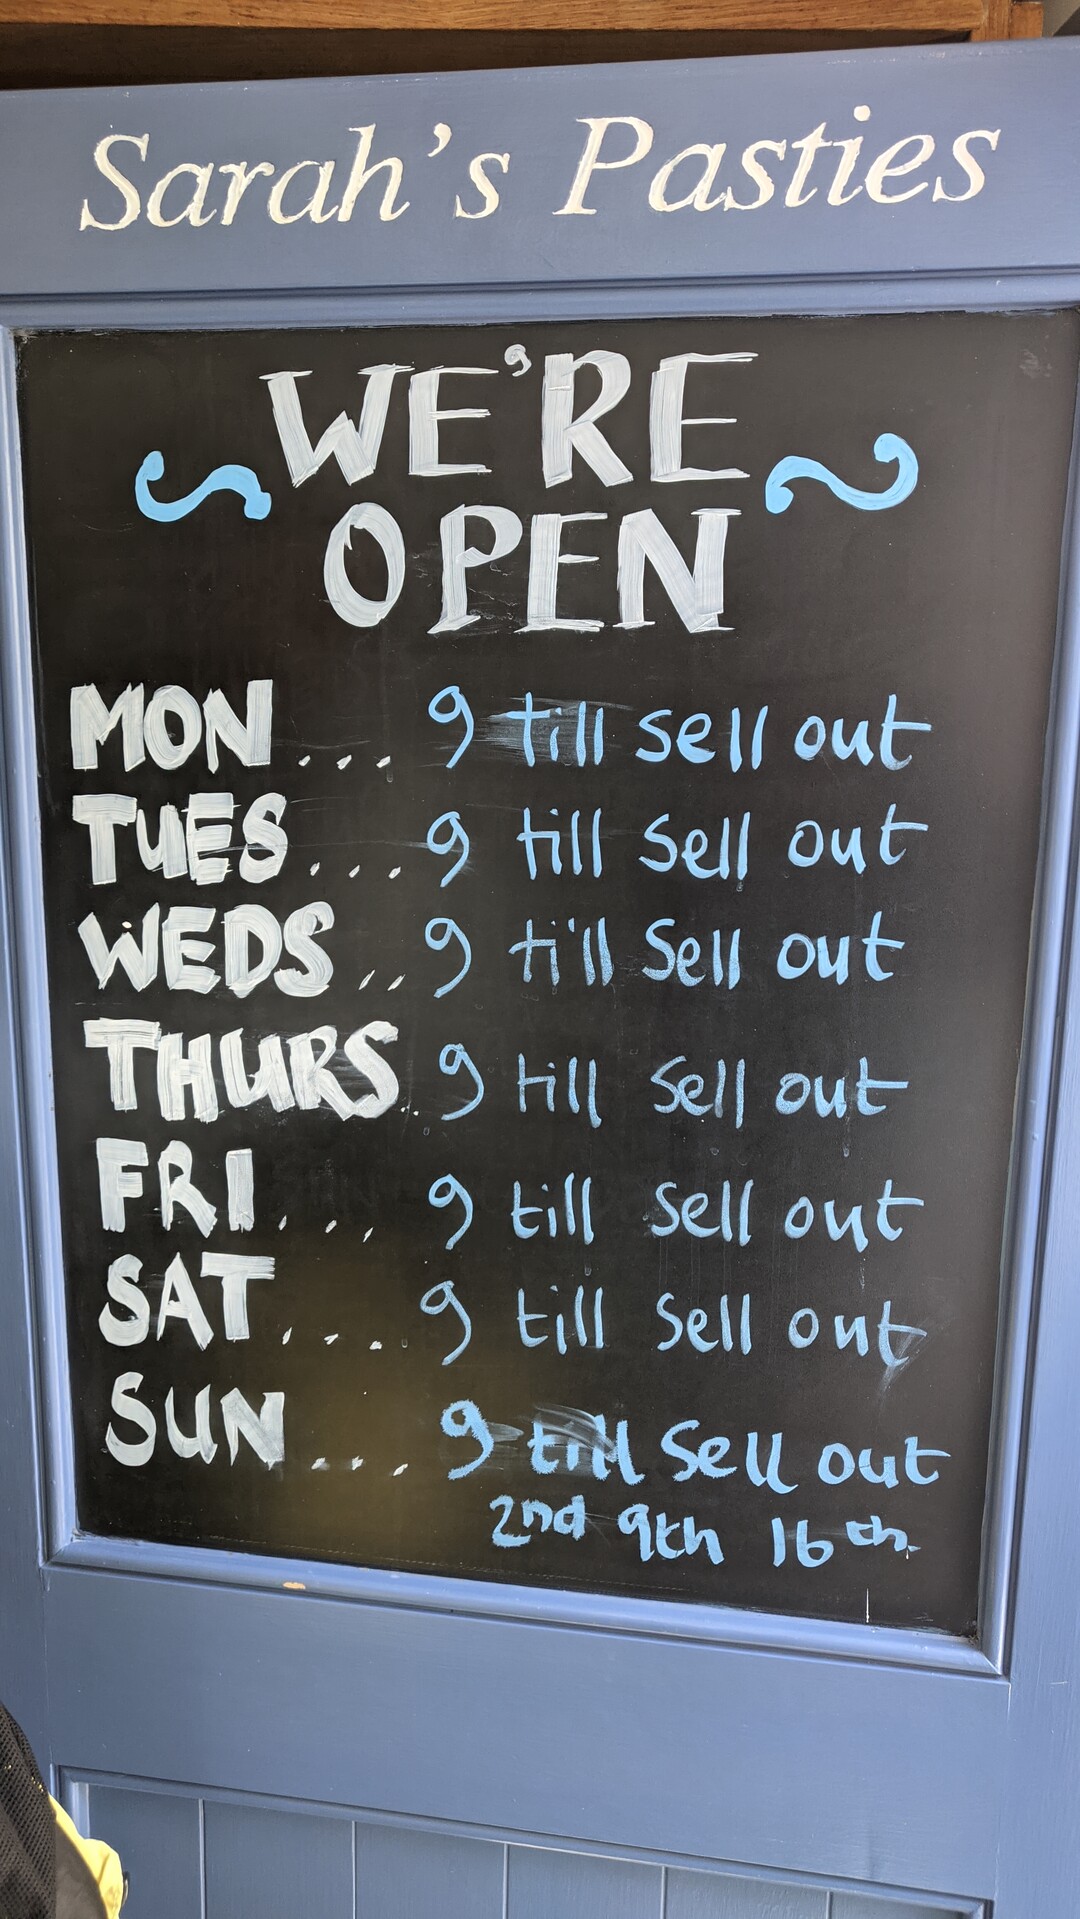 Sarah's Pasties
WE'RE
OPEN
MON.... 9 till sell out
TUES.... 9 till sell out
WEDS... 9 till sell out
THURS.. 9 till sell out
FRI.... 9 till sell out
SAT.... 9 till sell out
SUN.... 9 till sell out
2nd 9th 16th.